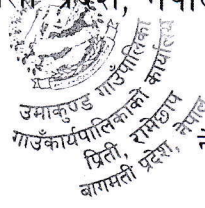 प्रदेश, नेपाल
उमाकुण्ड गाउँपालिका
गाउँकार्यपालिकाको कार्यालय
प्रिती, रामेछाप
बागमती प्रदेश, नेपाल